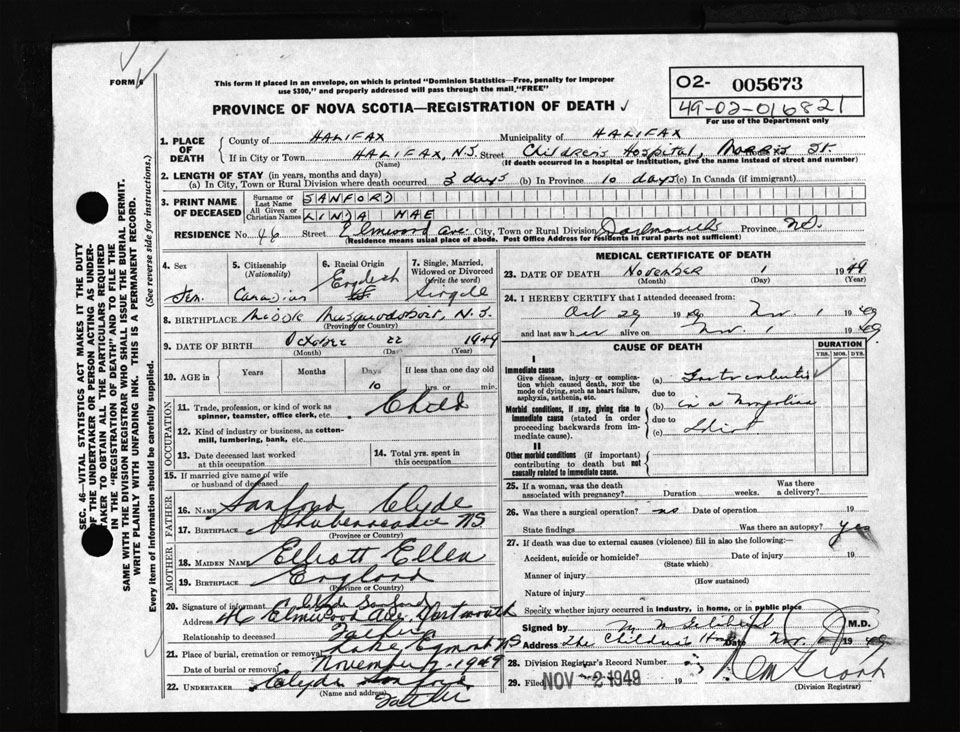 FORM 6
This form if placed in an envelope, on which is printed "Dominion Statistics—Free, penalty for improper
use $300," and properly addressed will pass through the mail "FREE"
PROVINCE OF NOVA SCOTIA—REGISTRATION OF DEATH
O2- 005673
49-02-016821
For use of the Department only
SEC. 46—VITAL STATISTICS ACT MAKES IT THE DUTY
OF THE UNDERTAKER OR PERSON ACTING AS UNDER-
TAKER TO OBTAIN ALL THE PARTICULARS REQUIRED
IN THE "REGISTRATION OF DEATH" AND TO FILE THE
SAME WITH THE DIVISION REGISTRAR WHO SHALL ISSUE THE BURIAL PERMIT.
WRITE PLAINLY WITH UNFADING INK. THIS IS A PERMANENT RECORD.
Every item of information should be carefully supplied. (See reverse side for instructions.)
1. PLACE OF DEATH
County of HALIFAX Municipality of HALIFAX
If in City or Town HALIFAX, N.S. Street Children's Hospital, Morris St.
(Name) (If death occurred in a hospital or institution, give the name instead of street and number)
2. LENGTH OF STAY (in years, months and days)
(a) In City, Town or Rural Division where death occurred 3 days (b) In Province 10 days (c) In Canada (if immigrant)
3. PRINT NAME OF DECEASED
Surname or Last Name SANFORD
All Given or Christian Names LINDA MAE
RESIDENCE No. 46 Street Elmwood Ave. City, Town or Rural Division Dartmouth Province NS.
(Residence means usual place of abode. Post Office Address for residents in rural parts not sufficient)
4. Sex
Fem.
5. Citizenship (Nationality)
Canadian
6. Racial Origin
English
7. Single, Married, Widowed or Divorced (write the word)
Single
8. BIRTHPLACE Middle Musquodoboit, N.S.
(Province or Country)
9. DATE OF BIRTH October 22 1949
(Month) (Day) (Year)
10. AGE in Years Months Days 10 If less than one day old hrs. or min.
OCCUPATION
11. Trade, profession or kind of work as spinner, teamster, office clerk, etc. Child
12. Kind of industry or business, as cotton-mill, lumbering, bank, etc.
13. Date deceased last worked at this occupation
14. Total yrs. spent in this occupation
15. If married give name of wife or husband of deceased
FATHER
16. NAME Sanford Clyde
17. BIRTHPLACE Shubenacadie NS
(Province or Country)
MOTHER
18. MAIDEN NAME Elliott Ellen
19. BIRTHPLACE England
(Province or Country)
20. Signature of informant Clyde Sanford
Address 46 Elmwood Ave. Dartmouth
Relationship to deceased Father
21. Place of burial, cremation or removal Lake Egmont NS
Date of burial or removal November 2 - 1949
22. UNDERTAKER Clyde Sanford
(Name and address)
Father
MEDICAL CERTIFICATE OF DEATH
23. DATE OF DEATH November 1 1949
(Month) (Day) (Year)
24. I HEREBY CERTIFY that I attended deceased from:
Oct 29 1949 to Nov. 1 1949
and last saw her alive on Nov. 1 1949
CAUSE OF DEATH DURATION
YRS. MOS. DYS.
I
Immediate cause
Give disease, injury or complication which caused death, NOT the mode of dying, such as heart failure, asphyxia, asthenia, etc.
(a) Gastroenteritis
due to
Morbid conditions, if any, giving rise to immediate cause (stated in order proceeding backwards from immediate cause).
(b) in a Mongolian
due to
(c) Idiot
II
Other morbid conditions (if important) contributing to death but not causally related to immediate cause.
25. If a woman, was the death associated with pregnancy? Duration weeks. Was there a delivery?
26. Was there a surgical operation? no Date of operation 19
State findings Was there an autopsy? yes
27. If death was due to external causes (violence) fill in also the following:—
Accident, suicide or homicide? Date of injury 19
(State which)
Manner of injury
(How sustained)
Nature of injury
Specify whether injury occurred in industry, in home, or in public place
Signed by M.D.
Address The Children's Hosp Date Nov. 1949
28. Division Registrar's Record Number
29. Filed NOV - 2 1949 19
(Division Registrar)